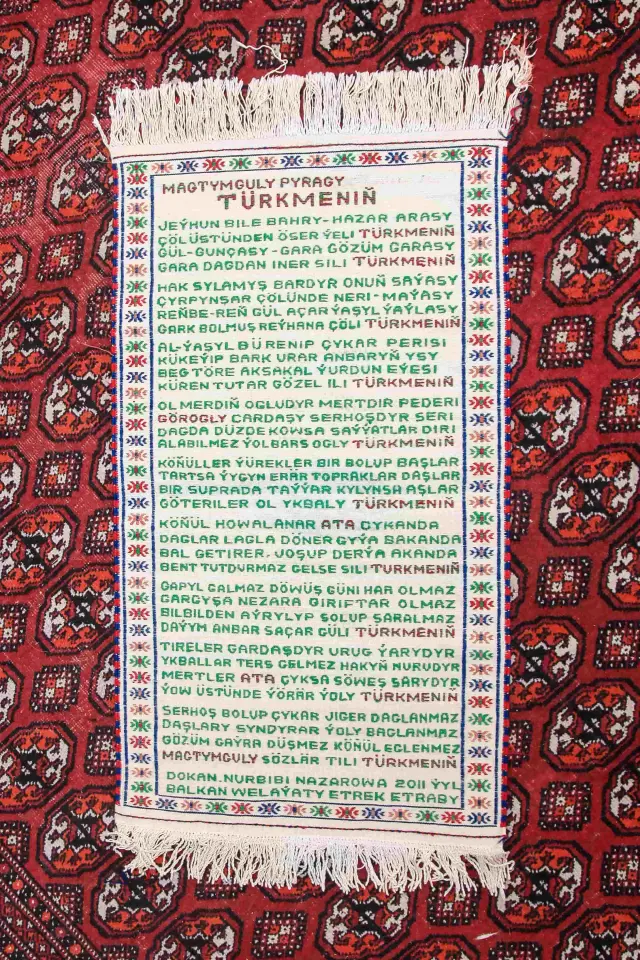 MAGTYMGULY PYRAGY
TÜRKMENIŇ
JEÝHUN BILE BAHRY-HAZAR ARASY
ÇÖL ÜSTÜNDEN ÖSER ÝELI TÜRKMENIŇ
GÜL-GUNÇASY-GARA GÖZÜM GARASY
GARA DAGDAN INER SILI TÜRKMENIŇ
HAK SYLAMYŞ BARDYR ONUŇ SAÝASY
ÇYRPYNŞAR ÇÖLÜNDE NERI-MAÝASY
REŇBE-REŇ GÜL AÇAR ÝAŞYL ÝAÝLASY
GARK BOLMUŞ REÝHANA ÇÖLI TÜRKMENIŇ
AL-ÝAŞYL BÜRENIP ÇYKAR PERISI
KÜKEÝIP BARK URAR ANBARYŇ YSY
BEG TÖRE AKSAKAL ÝURDUN EÝESI
KÜREN TUTAR GÖZEL ILI TÜRKMENIŇ
OL MERDIŇ OGLUDYR MERTDIR PEDERI
GÖROGLY GARDAŞY SERHOŞDYR SERI
DAGDA DÜZDE KOWSA SAÝÝATLAR DIRI
ALABILMEZ ÝOLBARS OGLY TÜRKMENIŇ
KÖŇÜLLER ÝÜREKLER BIR BOLUP BAŞLAR
TARTSA ÝYGYN ERÄR TOPRAKLAR DAŞLAR
BIR SUPRADA TAÝÝAR KYLYNSA AŞLAR
GÖTERILER OL YKBALY TÜRKMENIŇ
KÖŇÜL HOWALANAR ATA ÇYKANDA
DAGLAR LAGLA DÖNER GYÝA BAKANDA
BAL GETIRER, JOŞUP DERÝA AKANDA
BENT TUTDURMAZ GELSE SILI TÜRKMENIŇ
GAPYL GALMAZ DÖWÜŞ GÜNI HAR OLMAZ
GARGYŞA NEZARA GIRIFTAR OLMAZ
BILBILDEN AÝRYLYP ŞOLUP SARALMAZ
DAÝYM ANBAR SAÇAR GÜLI TÜRKMENIŇ
TIRELER GARDAŞDYR URUG ÝARYDYR
YKBALLAR TERS GELMEZ HAKYŇ NURUDYR
MERTLER ATA ÇYKSA SÖWEŞ SARYDYR
ÝOW ÜSTÜNDE ÝÖRÄR ÝOLY TÜRKMENIŇ
SERHOŞ BOLUP ÇYKAR JIGER DAGLANMAZ
DAŞLARY SYNDYRAR ÝOLY BAGLANMAZ
GÖZÜM GAÝRA DÜŞMEZ KÖŇÜL EGLENMEZ
MAGTYMGULY SÖZLÄR TILI TÜRKMENIŇ
DOKAN. NURBIBI NAZAROWA 2011 ÝYL
BALKAN WELAÝATY ETREK ETRABY